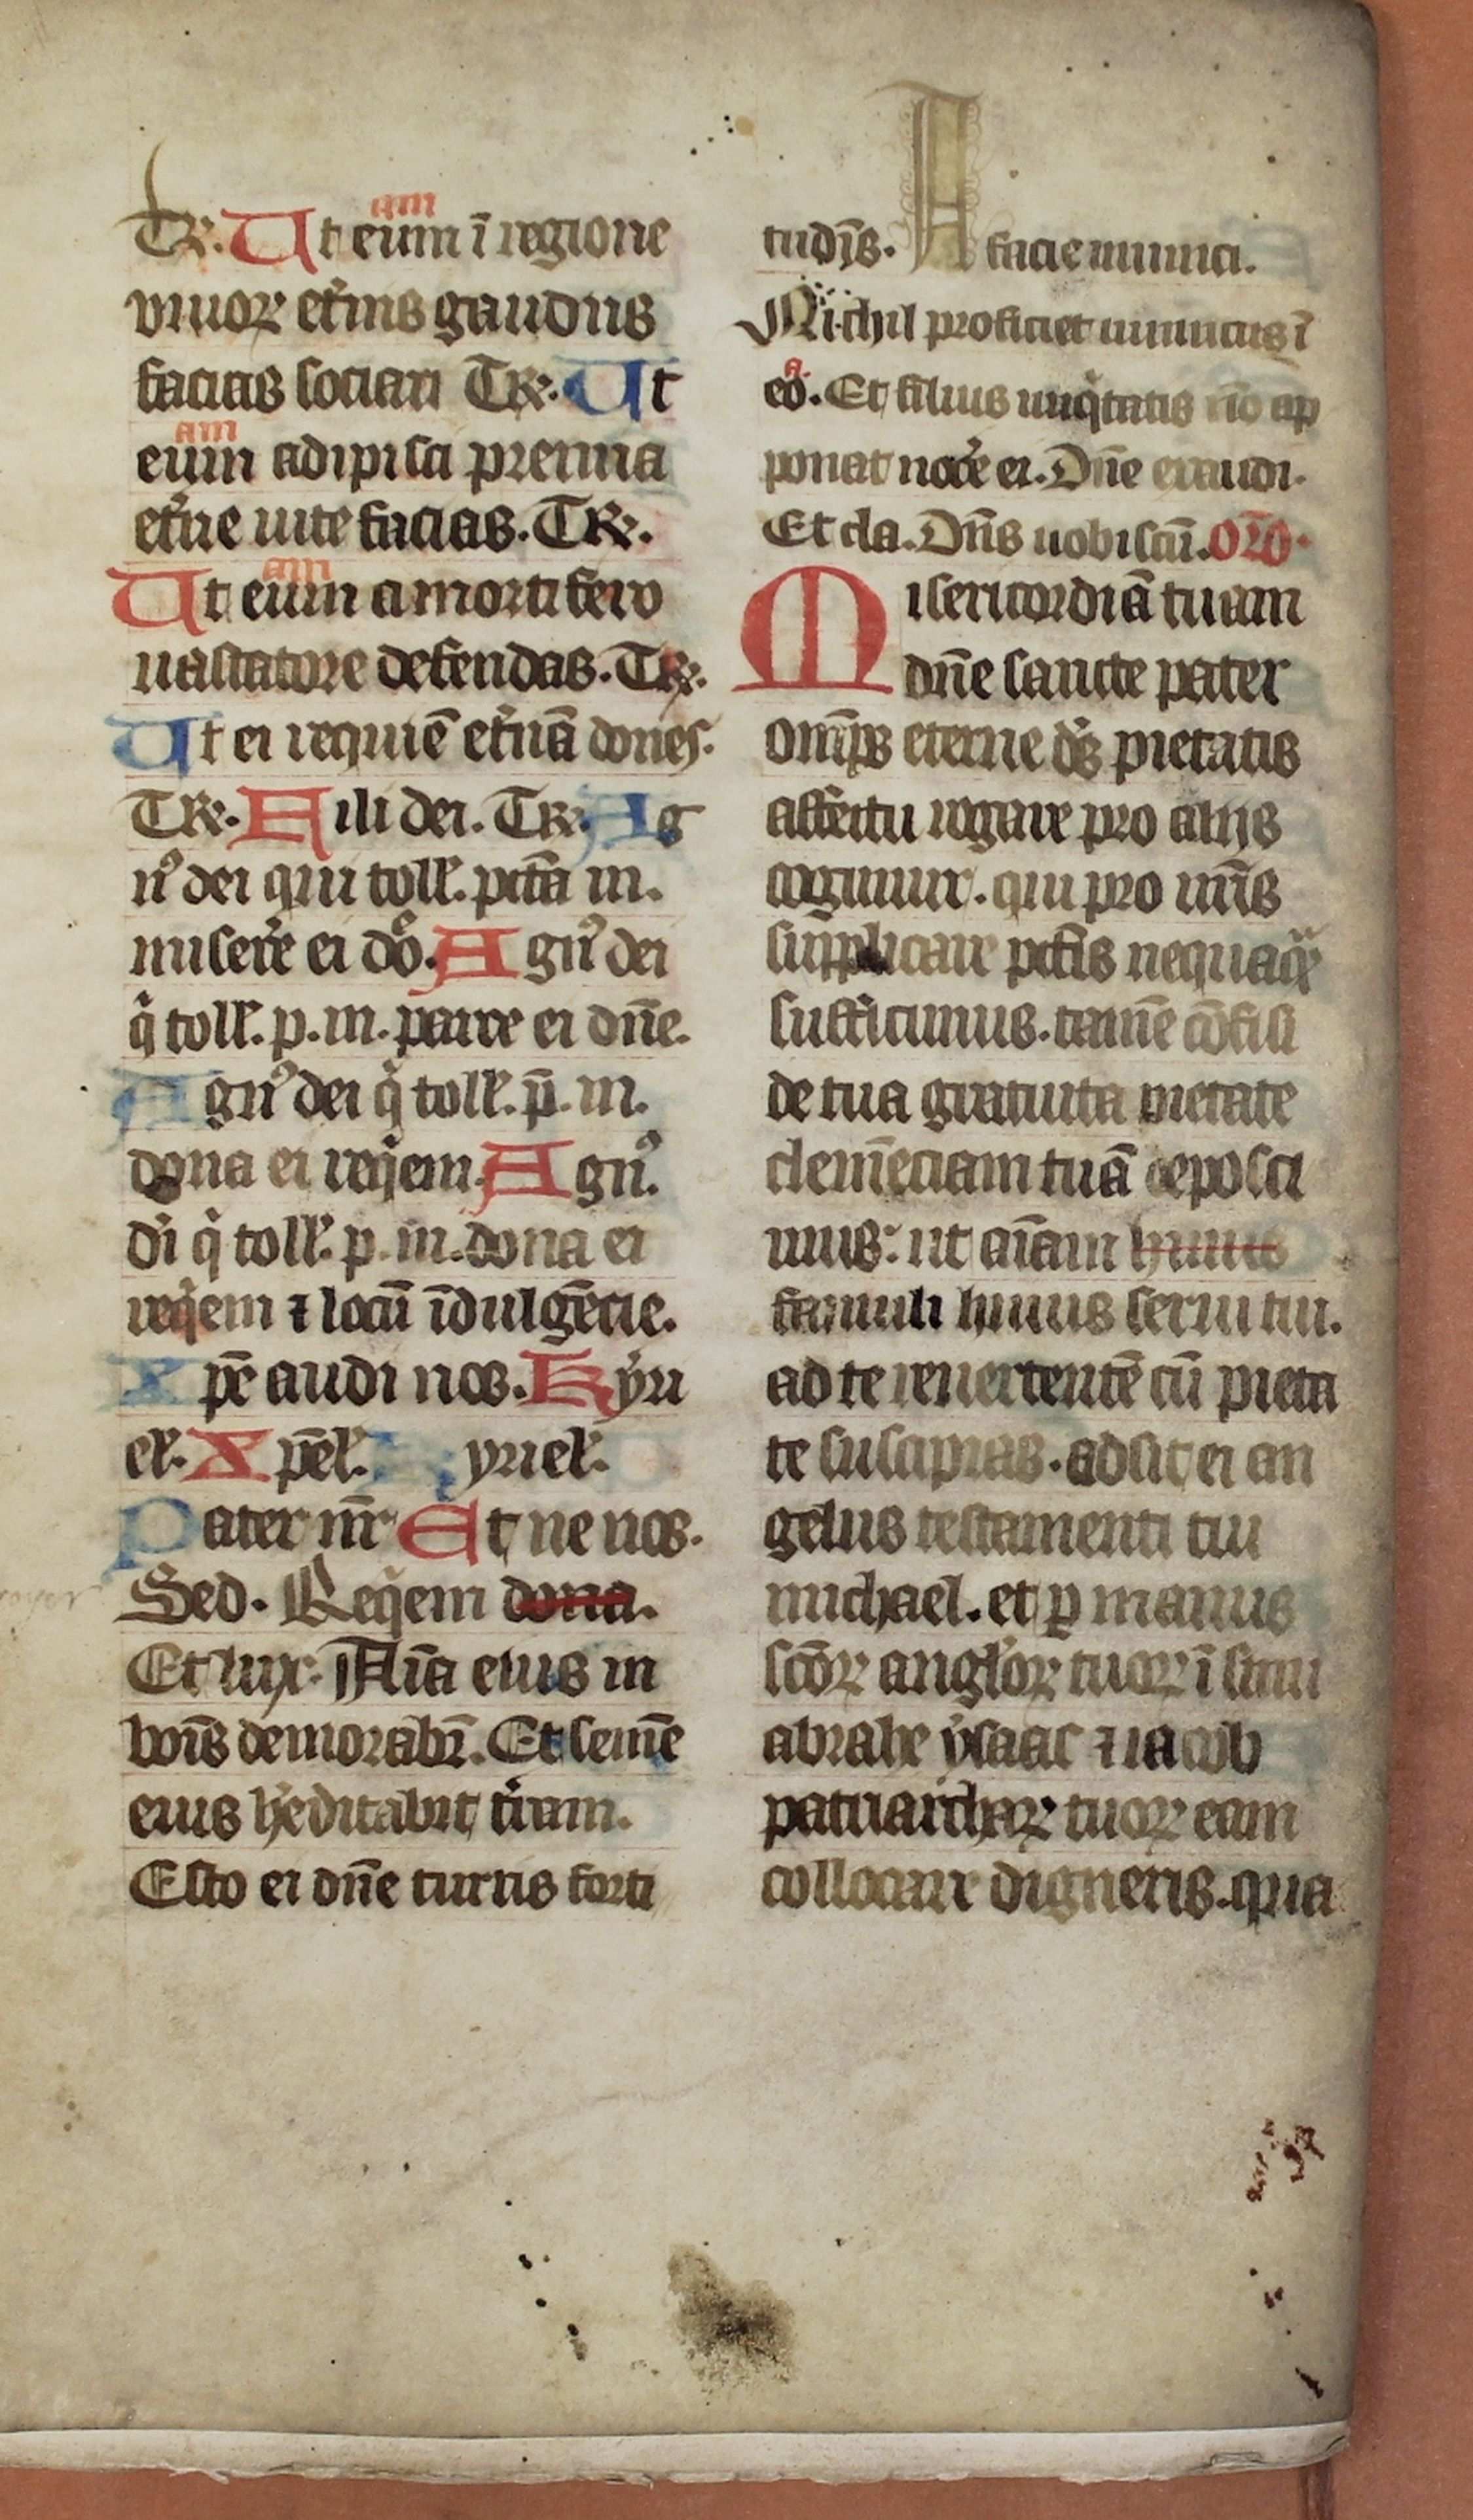 am
TR. Ut eum ī regione
viuoꝝ et̉nis gaudiis
facias sociari TR. Ut
am
eum adipisci premia
et̉ne uite facias. TR.
am
Ut eum a mortifero
uastatore defendas. TR.
Ut ei requiē et̉nā dones.
TR. Fili dei. TR. Ag
nꝰ dei qui toll. pctā m.
miserē ei dō. Agnꝰ dei
q̉ toll. p. m. parce ei dn̄e.
Agnꝰ dei q̉ toll. p̄. m.
dona ei req̉em. Agnꝰ.
di q̉ toll. p. m. dona ei
req̉em ⁊ locū īdulgēcie.
Xpē audi nos. Kyri
el. Xpēl. Kyriel.
Pater nr̄ Et ne nos.
Sed. Req̉em dona.
Et lux. Aīa eius in
bonīs demorabr̄. Et semē
eius h̉editabit t̉ram.
Esto ei dn̄e turris forti
tudīs. A facie inimici.
Nichil proficiet inimicus ī
a.
eo. Et filius iniq̉tatis nō ap
ponat nocē ei. Dn̄e exaudi.
Et cla. Dn̄s uobiscū. Orō.
Misericordiā tuam
dn̄e sancte pater
om̄ps eterne ds̄ pietatis
affectu rogare pro aliis
cogimur. qui pro nr̄is
supplicare pctīs nequaqͣ
sufficimus. tamē cōfisi
de tua gratuita pietate
clemēciam tuā deposci
mus: ut aīam huius
famuli huius serui tui.
ad te reuertentē cū pieta
te suscipias. adsit ei an
gelus testamenti tui
michael. et ꝑ manus
scōꝝ angl̉oꝝ tuoꝝ ī sinu
abrahe ysaac ⁊ iacob
patriarchaꝝ tuoꝝ eam
collocare digneris. qua